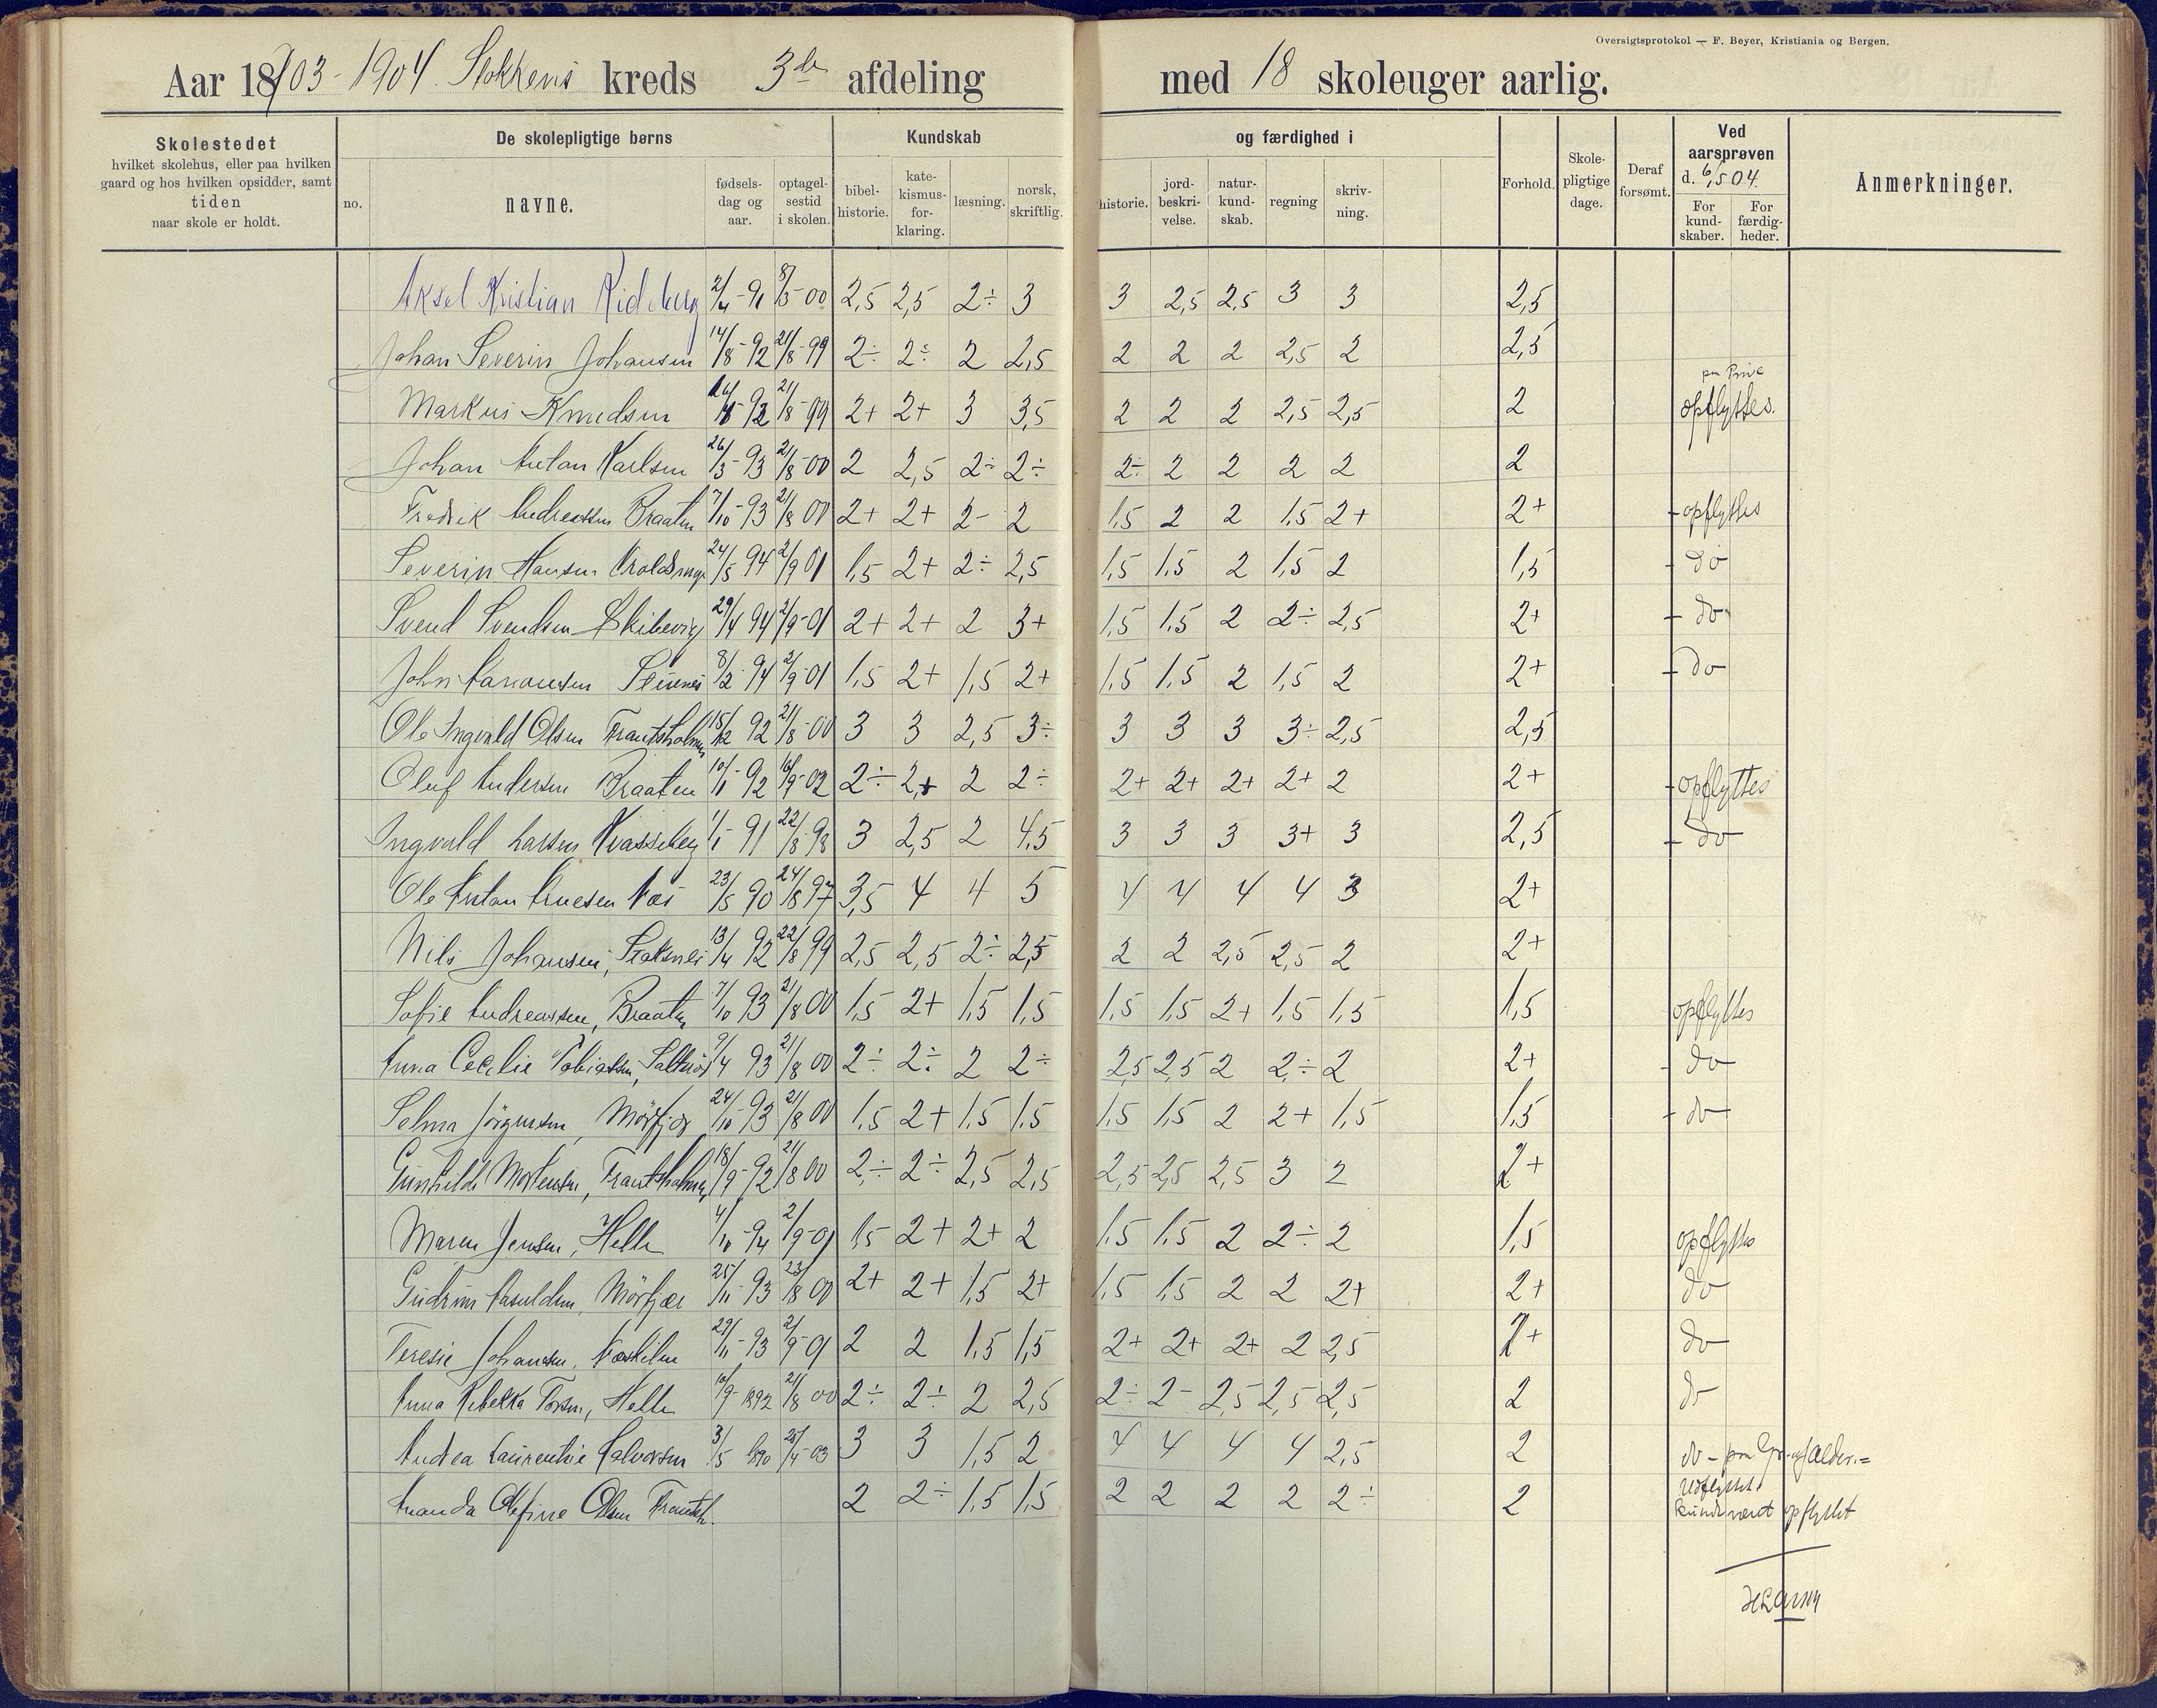 Oversigtsprotokol — F. Beyer, Kristiania og Bergen.
Aar 1903-1904. kreds 3de afdeling med 18 skoleuger aarlig.
Skolestedet
hvilket skolehus, eller paa hvilken
gaard og hos hvilken opsidder, samt
tiden
naar skole er holdt.
De skolepligtige børns
no.
navne.
fødsels-
dag og
aar.
optagel-
sestid
i skolen.
Kundskab og færdighed i
bibel-
historie.
kate-
kismus-
for-
klaring.
læsning.
norsk,
skriftlig.
historie.
jord-
beskri-
velse.
natur-
kund-
skab.
regning
skriv-
ning.
Forhold.
Skole-
pligtige
dage.
Deraf
forsømt.
Ved
aarsprøven
d. 6/5 04.
For
kund-
skaber.
For
færdig-
heder.
Anmerkninger.
Aksel Kristian 2/4-91 8/5-00 2,5 2,5 2÷ 3 3 2,5 2,5 3 3 2,5
Johan Severin Johansen 14/8-92 21/8-99 2÷ 2÷ 2 2,5 2 2 2 2,5 2 2,5
Markus Knudsen 92 21/8-99 2+ 2+ 3 3,5 2 2 2 2,5 2,5 2 opflyttes.
Johan Anton Karlsen 26/3-93 21/8-00 2 2,5 2÷ 2÷ 2÷ 2 2 2 2 2
Fredrik Andreassen Braaten 7/10-93 21/8 00 2+ 2+ 2- 2 1,5 2 2 1,5 2+ 2+ - opflyttes
Severin Hansen 24/5 94 2/9 01 1,5 2+ 2÷ 2,5 1,5 1,5 2 1,5 2 1,5 - do
Svend Svendsen Skibevig 29/4 94 2/9-01 2+ 2+ 2 3+ 1,5 1,5 2 2÷ 2,5 2+ - do
John 8/2-94 2/9 01 1,5 2+ 1,5 2+ 1,5 1,5 2 1,5 2 2+ - do
Ole Ingvald Olsen Frantsholmen 15/12 92 21/8-00 3 3 2,5 3÷ 3 3 3 3÷ 2,5 2,5
Oluf Andersen Braaten 10/1-92 16/9-02 2÷ 2+ 2 2÷ 2+ 2+ 2+ 2+ 2 2+ - opflyttes
Ingvald Larsen 1/1-91 22/8-98 3 2,5 2 4,5 3 3 3 3+ 3 2,5 - do
Ole Anton 23/5 90 24/8 97 3,5 4 4 5 4 4 4 4 3 2+
Nils Johansen, 13/4 92 22/8 99 2,5 2,5 2÷ 2,5 2 2 2,5 2,5 2 2+
Sofie Andreassen, Braaten 7/10 93 21/8 00 1,5 2+ 1,5 1,5 1,5 1,5 2+ 1,5 1,5 1,5 opflyttes
Anna Cecilie Tobiassen, 9/4 93 21/8 00 2÷ 2÷ 2 2÷ 2,5 2,5 2 2÷ 2 2+ - do
Selma Jörgensen, Mörfjær 24/10-93 21/8 00 1,5 2+ 1,5 1,5 1,5 1,5 2 2+ 1,5 1,5 - do
Gunhilde Mortensen, Frantsholmen 18/9-92 21/8 00 2÷ 2÷ 2,5 2,5 2,5 2,5 2,5 3 2 2+
Maren Jensen, Helle 4/10-94 2/9-01 1,5 2+ 2+ 2 1,5 1,5 2 2÷ 2 1,5 opflyttes
Gudrun Mörfjær 25/11-93 23/8 00 2+ 2+ 1,5 2+ 1,5 1,5 2 2 2+ 2+ do
Teresie Johansen, 29/11-93 2/9-01 2 2 1,5 1,5 2+ 2+ 2+ 2 2,5 2+ do
Anna Rebekka Helle 10/9-1892 21/8 00 2÷ 2÷ 2 2,5 2÷ 2- 2,5 2,5 2,5 2 do
Andrea Laurentine Halvorsen 3/5 1890 /4-03 3 3 1,5 2 4 4 4 4 2,5 2 do - alder.=
Amanda Olefine Olsen 2 2÷ 1,5 1,5 2 2 2 2 2÷ 2 Udflyttet
kunde været opflyttet